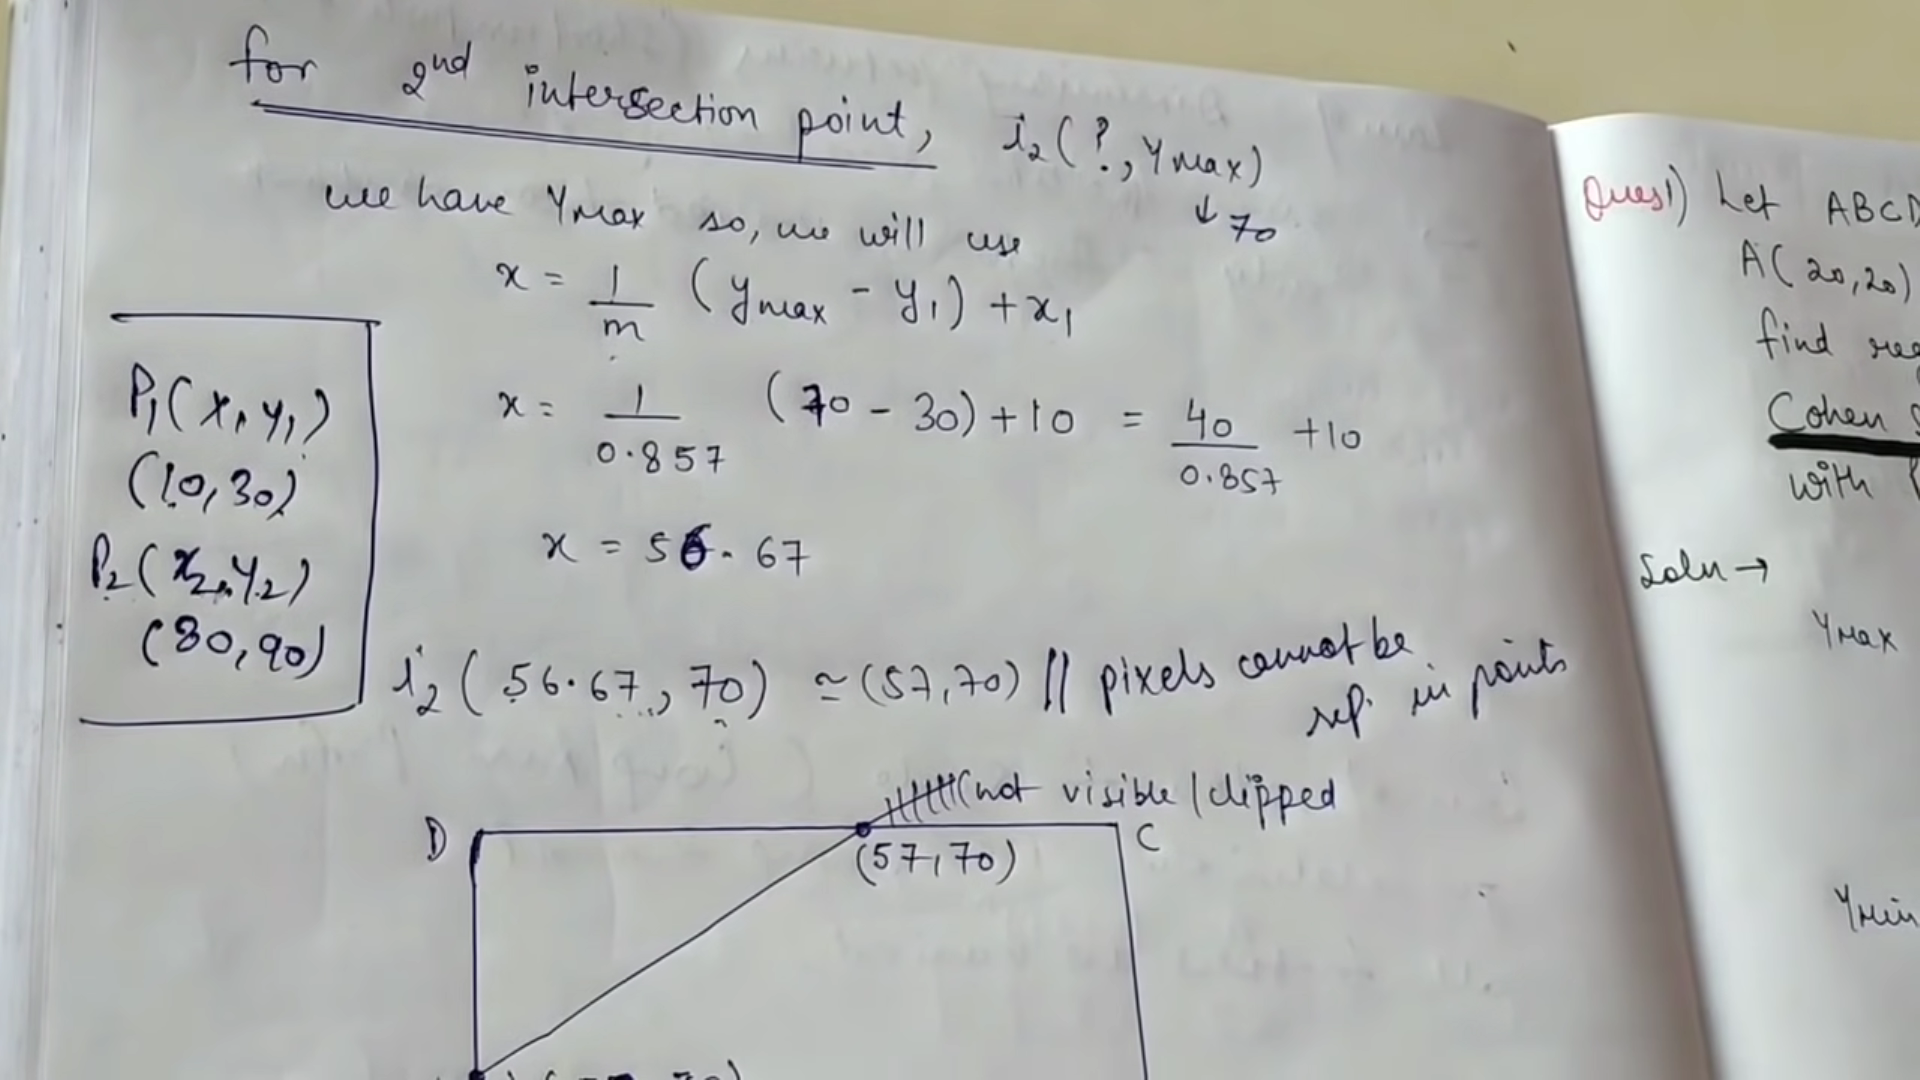 for 2nd intersection point, i2(?, Ymax)
↓ 70
we have Ymax so, we will use
x = 1/m (ymax - y1) + x1
P1(x1, y1)
(10, 30)
P2(x2, y2)
(80, 90)
x = 1/0.857 (70 - 30) + 10 = 40/0.857 + 10
x = 56.67
i2 (56.67, 70) ≃ (57, 70) // pixels cannot be
rep. in points
(not visible / clipped
D
C
(57, 70)
Ques1) Let ABCD
A(20,20)
find reg
Cohen S
with P
Soln →
Ymax
Ymin